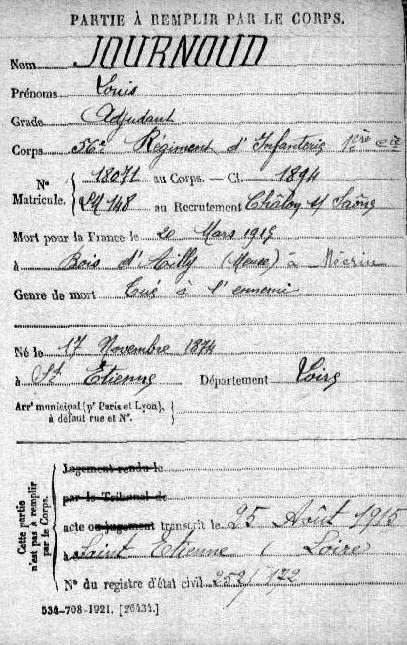 PARTIE À REMPLIR PAR LE CORPS.
Nom JOURNOUD
Prénoms Louis
Grade Adjudant
Corps 56e Régiment d'Infanterie 1ère Cie
N° Matricule. { 18071 au Corps. — Cl. 1894
SM 148 au Recrutement Châlon s/ Saône
Mort pour la France le 20 Mars 1915
à Bois d'Ailly (Meuse) à Mécrin
Genre de mort Tué à l'ennemi
Né le 17 Novembre 1874
à St Etienne Département Loire
Arrt municipal (pr Paris et Lyon), à défaut rue et N°. {
Cette partie n'est pas à remplir par le Corps. {
Jugement rendu le
par le Tribunal de
acte ou jugement transcrit le 25 Août 1915
à Saint Etienne (Loire)
N° du registre d'état civil 252/172
534-708-1921. [26434.]